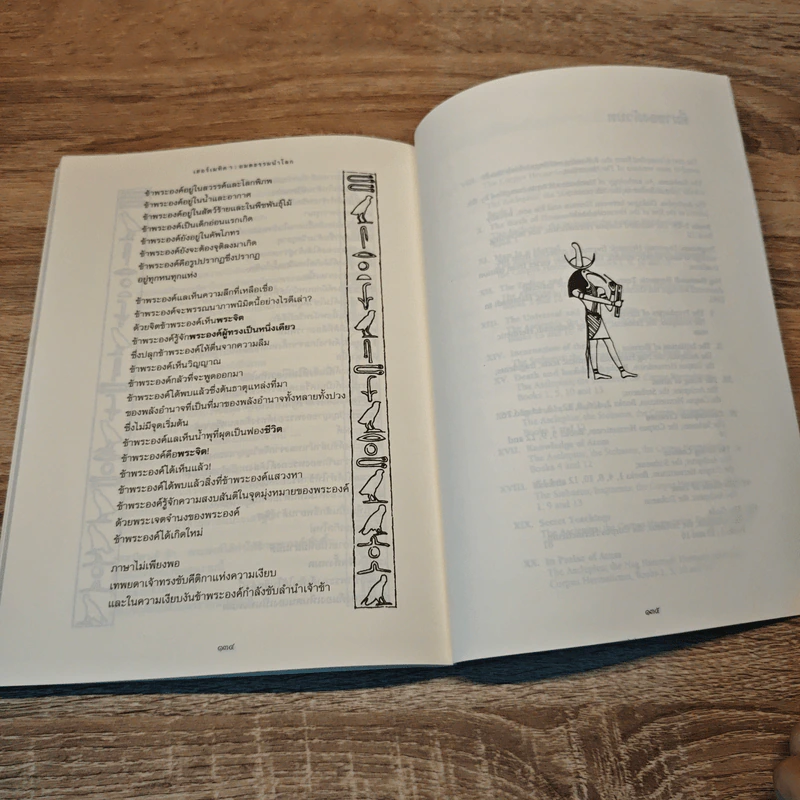 เฮอร์เมติคา : อมตธรรมนำโลก
ข้าพระองค์อยู่ในสวรรค์และโลกพิภพ
ข้าพระองค์อยู่ในน้ำและอากาศ
ข้าพระองค์อยู่ในสัตว์ร้ายและในพืชพันธุ์ไม้
ข้าพระองค์เป็นเด็กอ่อนแรกเกิด
ข้าพระองค์ยังอยู่ในคัพโภทร
ข้าพระองค์ยังจะต้องจุติลงมาเกิด
ข้าพระองค์คือรูปปรากฏซึ่งปรากฏ
อยู่ทุกหนทุกแห่ง
ข้าพระองค์แลเห็นความลึกที่เหลือเชื่อ
ข้าพระองค์จะพรรณนาภาพนิมิตนี้อย่างไรดีเล่า?
ด้วยจิตข้าพระองค์เห็นพระจิต
ข้าพระองค์รู้จักพระองค์ผู้ทรงเป็นหนึ่งเดียว
ซึ่งปลุกข้าพระองค์ให้ตื่นจากความลืม
ข้าพระองค์เห็นวิญญาณ
ข้าพระองค์กลัวที่จะพูดออกมา
ข้าพระองค์ได้พบแล้วซึ่งต้นธาตุแหล่งที่มา
ของพลังอำนาจที่เป็นที่มาของพลังอำนาจทั้งหลายทั้งปวง
ซึ่งไม่มีจุดเริ่มต้น
ข้าพระองค์แลเห็นน้ำพุที่ผุดเป็นฟองชีวิต
ข้าพระองค์คือพระจิต!
ข้าพระองค์ได้เห็นแล้ว!
ข้าพระองค์ได้พบแล้วสิ่งที่ข้าพระองค์แสวงหา
ข้าพระองค์รู้จักความสงบสันติในจุดมุ่งหมายของพระองค์
ด้วยพระเจตจำนงของพระองค์
ข้าพระองค์ได้เกิดใหม่
ภาษาไม่เพียงพอ
เทพยดาเจ้าทรงขับคีติกาแห่งความเงียบ
และในความเงียบงันข้าพระองค์กำลังขับลำนำเจ้าข้า
๑๓๔
๑๓๕